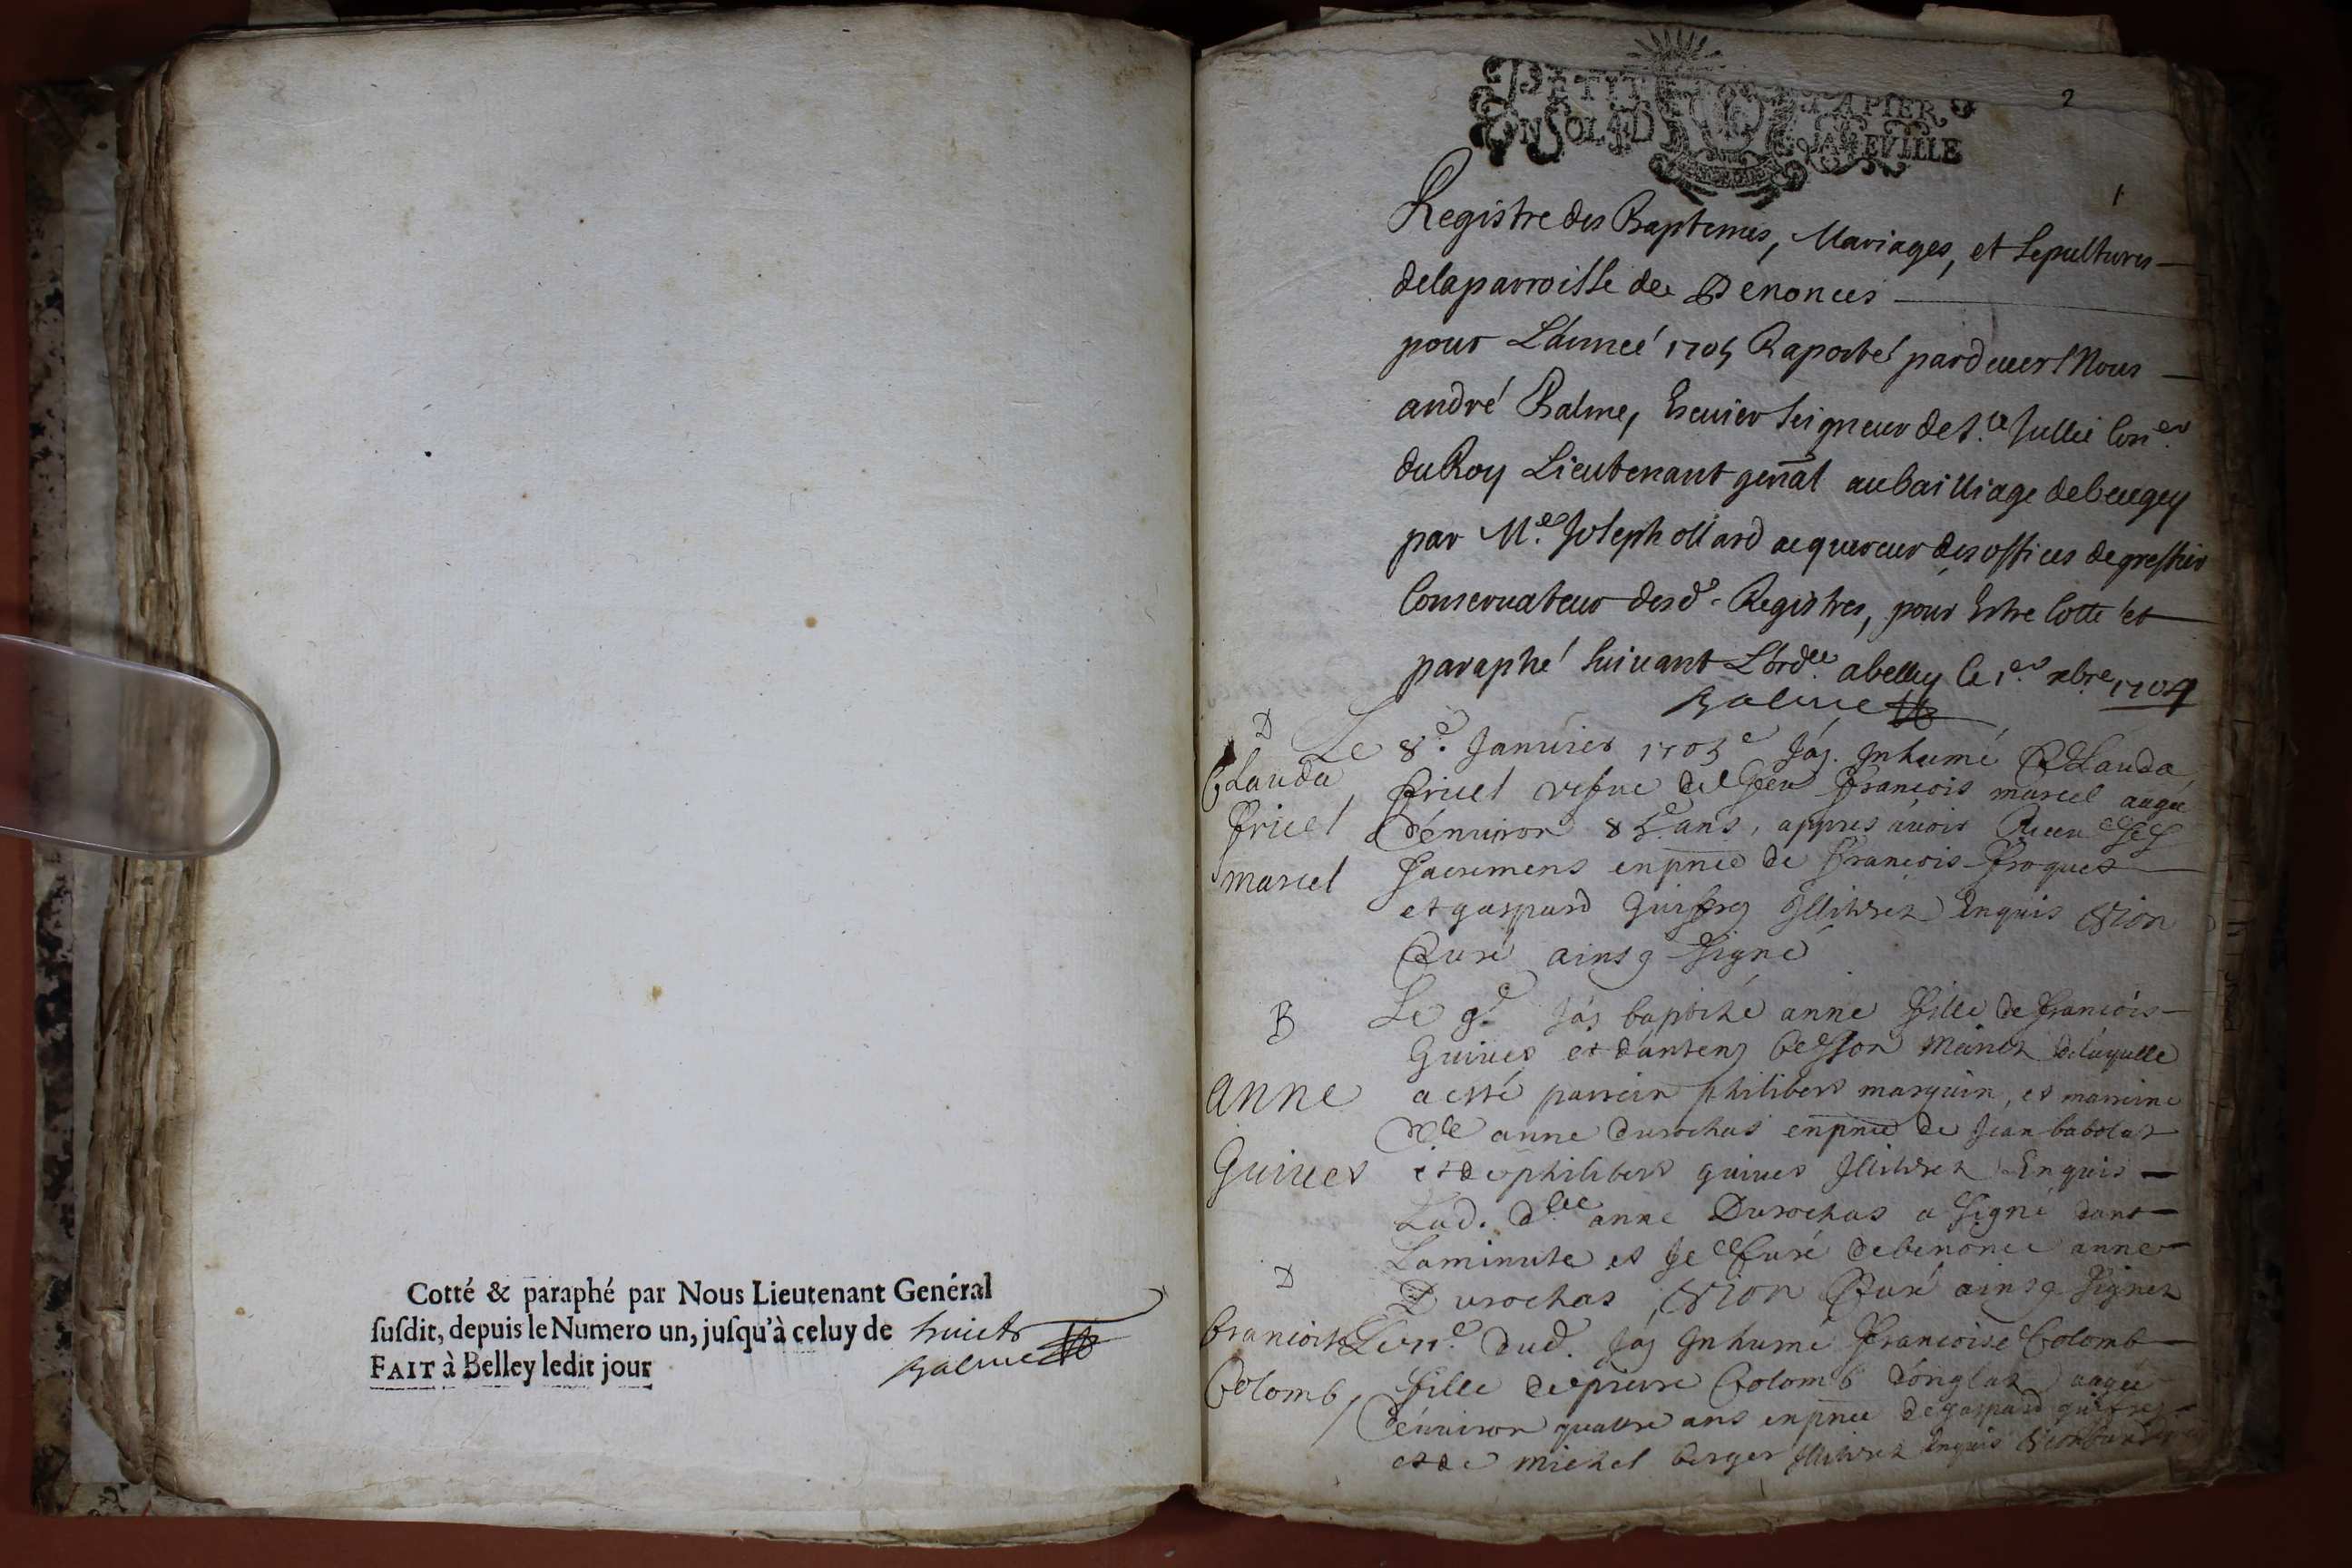 Cotté & paraphé par Nous Lieutenant Genéral
ſuſdit, depuis le Numero un, juſqu'à celuy de huict
FAIT à Belley ledit jour
Balme
2
PETIT PAPIER
EN SOL D LA FEVILLE
1
Registre des Baptemes, Mariages, et Sepultures
de la parroisse de Benonces
pour L'année 1705 Raporté pardeuers Nous
andré Balme, Escuier Seigneur de S.te Jullie Con.er
du Roy Lieutenant gen̄al au bailliage de beugey
par M.e Joseph ollard acquereur des offices de greffier
Conseruateur desd. Registres, pour Estre Cotté et
paraphé suiuant L'ord.ce a belley le 1.er xbre 1704
Balme
D
Clauda
fricel
marcel
Le 8.e Januier 1705 Jáy Inhumé Clauda
fricel vefue de feu françois marcel aagée
d'enuiron 85 ans, appres auoir Receu ses
sacremens en pnce de françois froquet
et gaspard guifrey Illiterez Enquis Vion
Curé ainsy signé
B
anne
Guiues
Le 9.e Jáy baptisé anne fille de françois
Guiues et dánteny Besson Mariez de laquelle
a esté parrein philibert marquin, et marreine
d.lle anne durochas en pnce de Jean babolat
et de philibert guiues Illiterez Enquis
Lad. d.lle anne Durochas a signé dans
La minute et Je Curé de benonce anne
Durochas, Vion Curé ainsy signez
D
francoise
Colomb
Le 11.e dud. Jáy Inhumé francoise Colomb
fille de pierre Colomb d'onglas aagée
d'enuiron quattre ans en pnce de gaspard guifrey
et de michel berger Illiterez Enquis Vion Curé